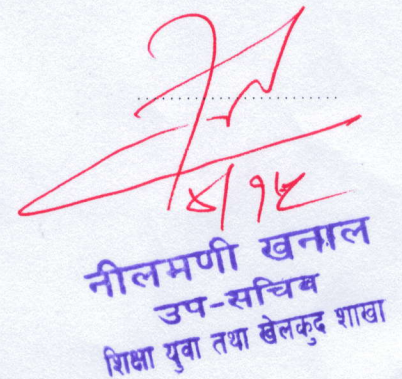 ४/१५
नीलमणी खनाल
उप-सचिव
शिक्षा युवा तथा खेलकुद शाखा